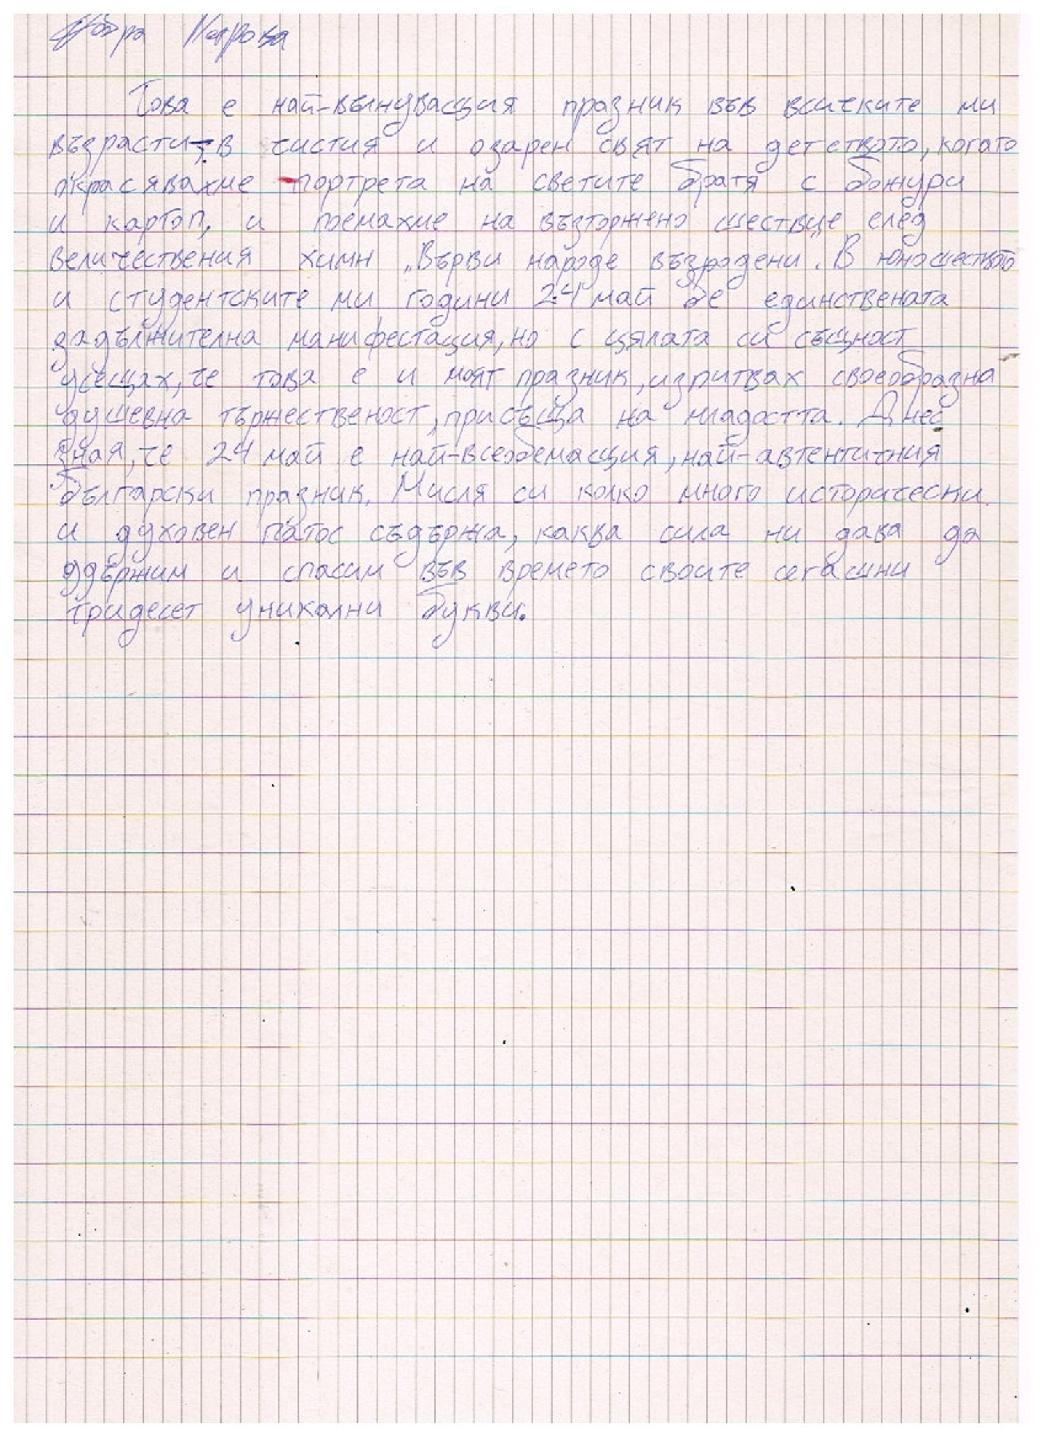 Петрова
Това е най-вълнуващия празник във всичките ми
възрасти, в чистия и озарен свят на детството, когато
окрасявахме портрета на светите братя с божури
и картоп, и поемахме на възторжено шествие след
величествения химн „Върви народе възродени. В юношеството
и студентските ми години 24 май бе единствената
задължителна манифестация, но с цялата си същност
усещах, че това е и моят празник, изпитвах своеобразна
душевна тържественост, присъща на младостта. Днес
зная, че 24 май е най-всеобемащия, най-автентичния
български празник. Мисля си колко много исторически
и духовен патос съдържа, каква сила ни дава да
удържим и спасим във времето своите сегашни
тридесет уникални букви.